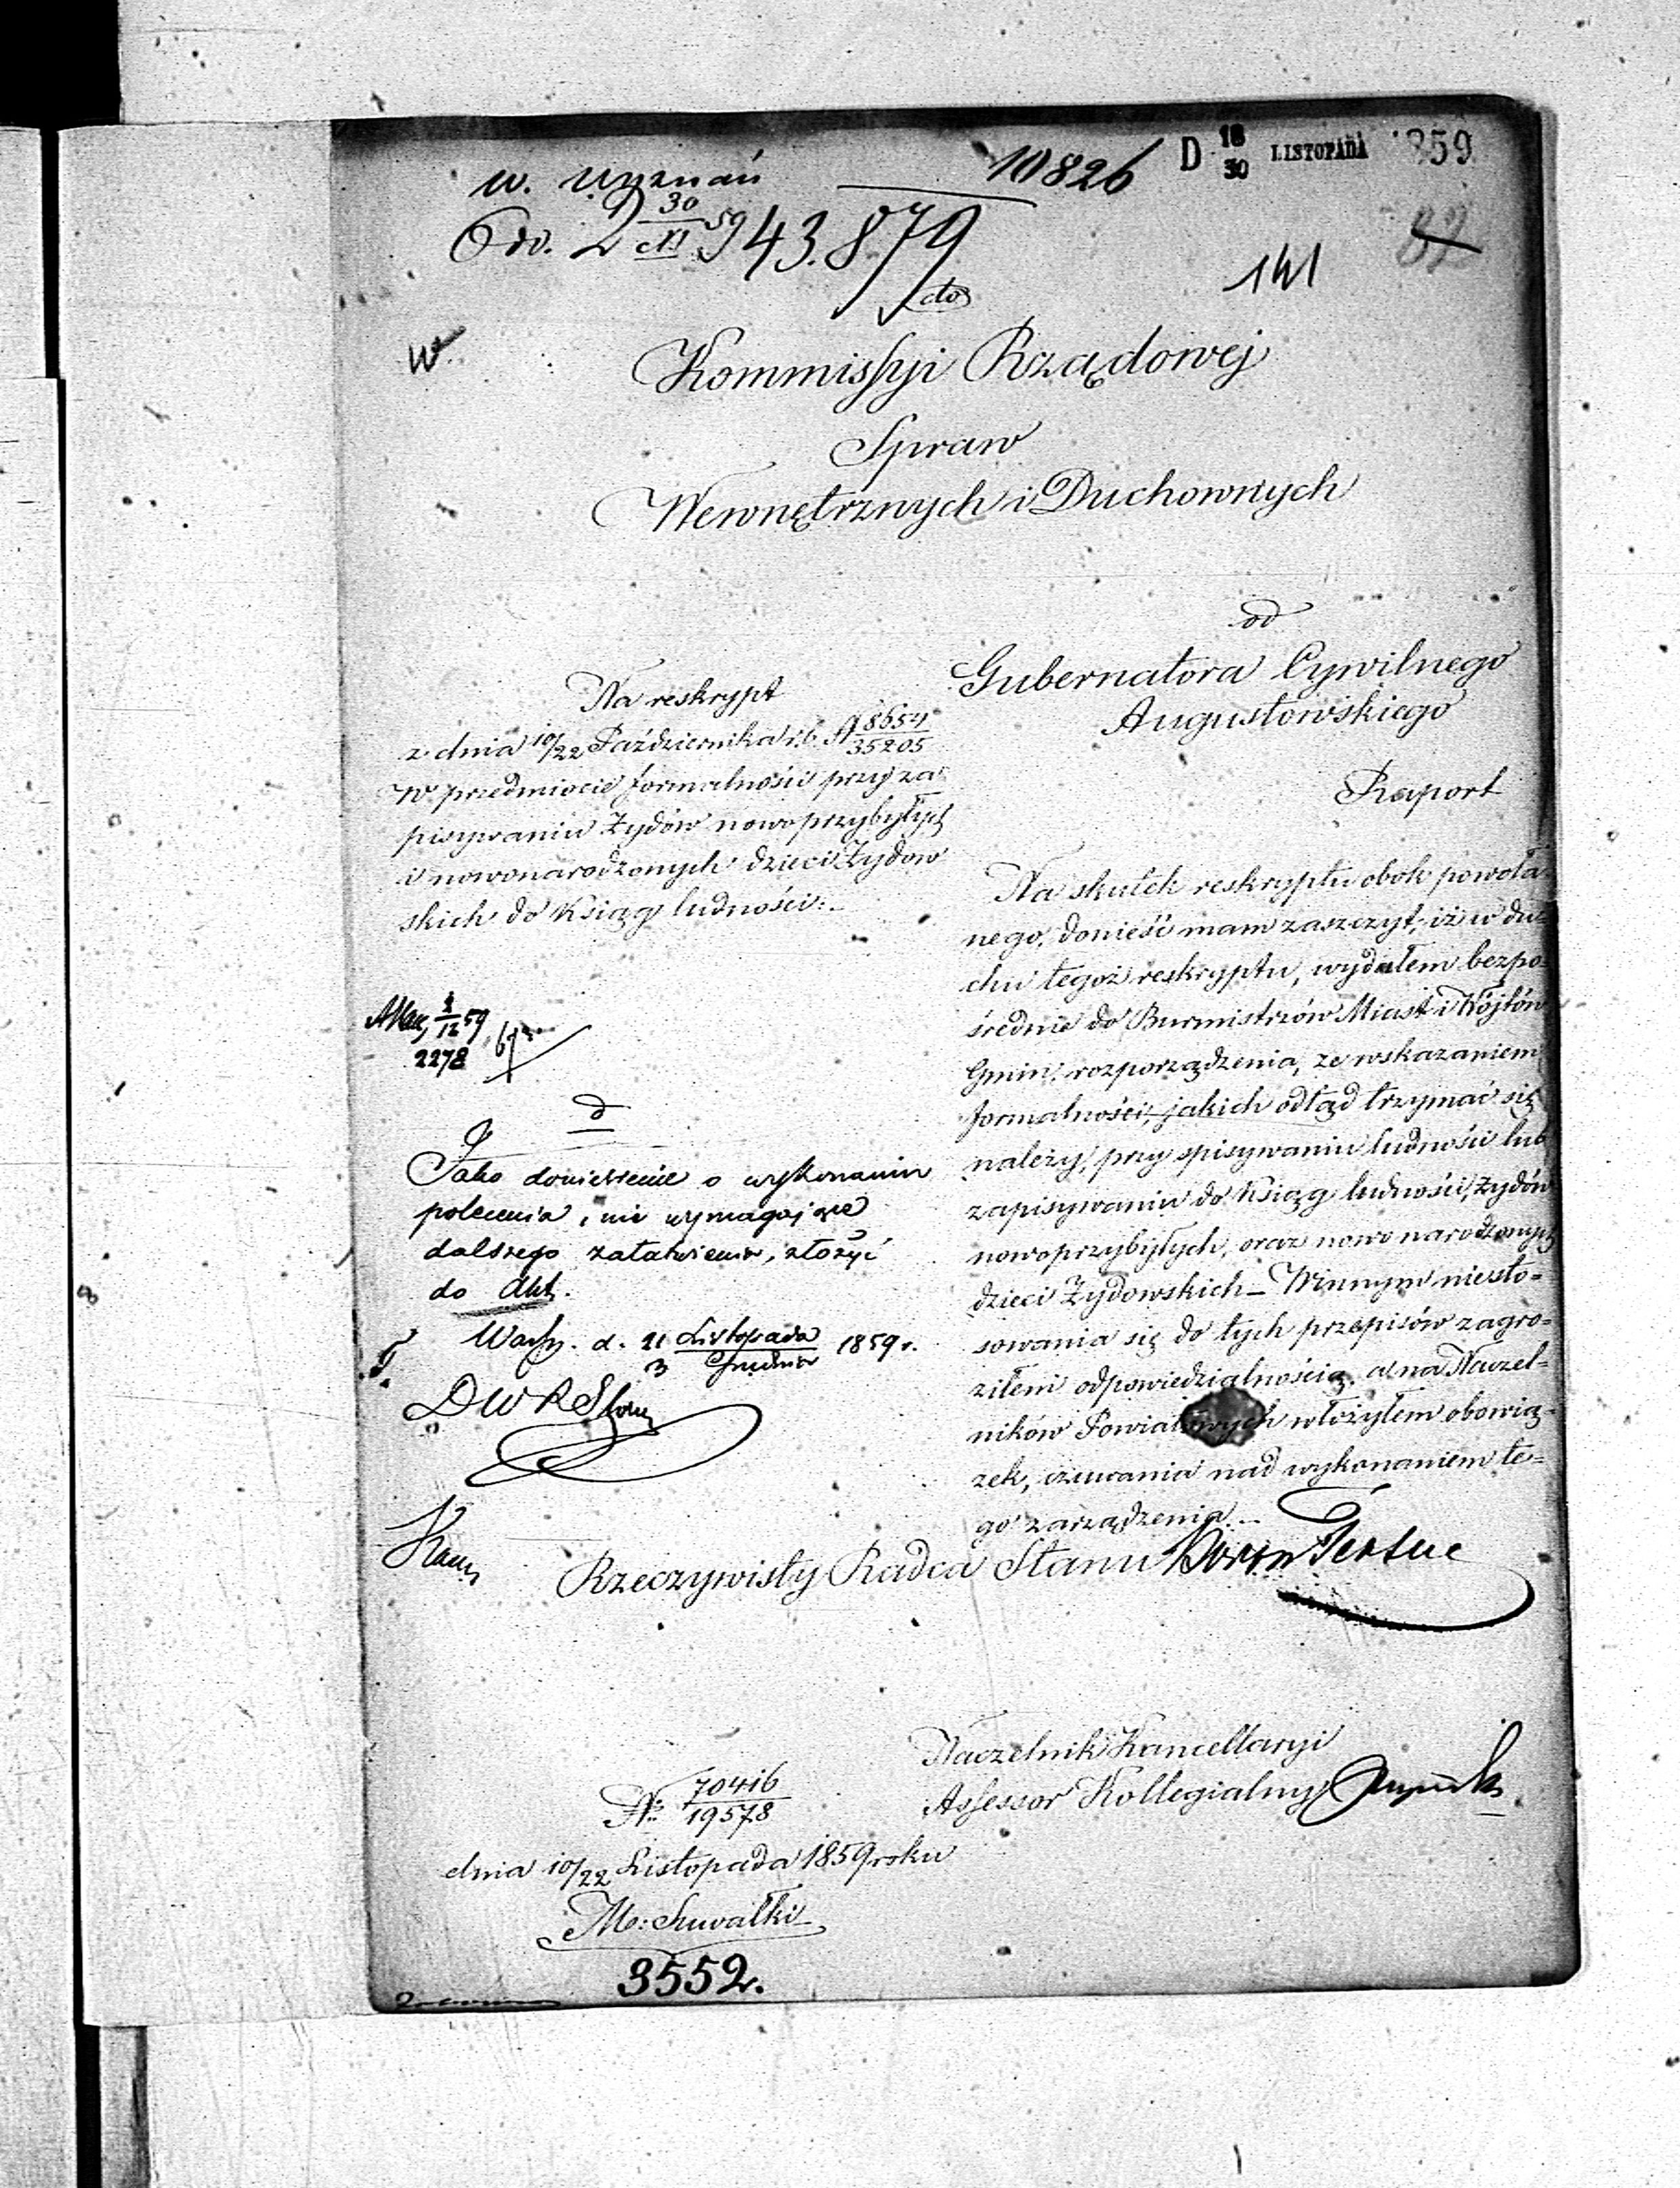 W. Wyznań
10826
D 18/30 LISTOPADA 1859
Odv. 2 30/XI 59 43.879
82
141
do
W
Kommissyi Rządowej
Spraw
Wewnętrznych i Duchownych
od
Gubernatora Cywilnego
Augustowskiego
Raport
Na reskrypt
z dnia 10/22 Października r.b. N 8654/35205
W przedmiocie formalności przy za
pisywaniu Żydów nowoprzybyłych
i nowonarodzonych dzieci Żydow
skich do Ksiąg ludności.
Na skutek reskryptu obok powoła
nego, donieść mam zaszczyt, iż w du=
chu tegoż reskryptu, wydałem bezpo=
średnie do Burmistrzów Miast i Wójtów
Gmin, rozporządzenia, ze wskazaniem
formalności, jakich odtąd trzymać się
należy, przy spisywaniu ludności lub
zapisywaniu do Ksiąg ludności, Żydów
nowoprzybyłych, oraz nowonarodzonych
dzieci Żydowskich – Winnym niesto=
sowania się do tych przepisów zagro=
ziłem odpowiedzialnością, a na Naczel=
ników Powiatowych włożyłem obowią=
zek, czuwania nad wykonaniem te=
go zarządzenia.
Rzeczywisty Radca Stanu
12 59
2278
Jako doniesienie o wykonaniu
polecenia, nie wymagające
dalszego załatwienia, złożyć
do Akt.
Warsz. d. 21 Listopada/3 Grudnia 1859 r.
DWRS
Naczelnik Kancellaryi
Assessor Kollegialny
N: 70416/19578
dnia 10/22 Listopada 1859 roku
Mo: Suwałki
3552.